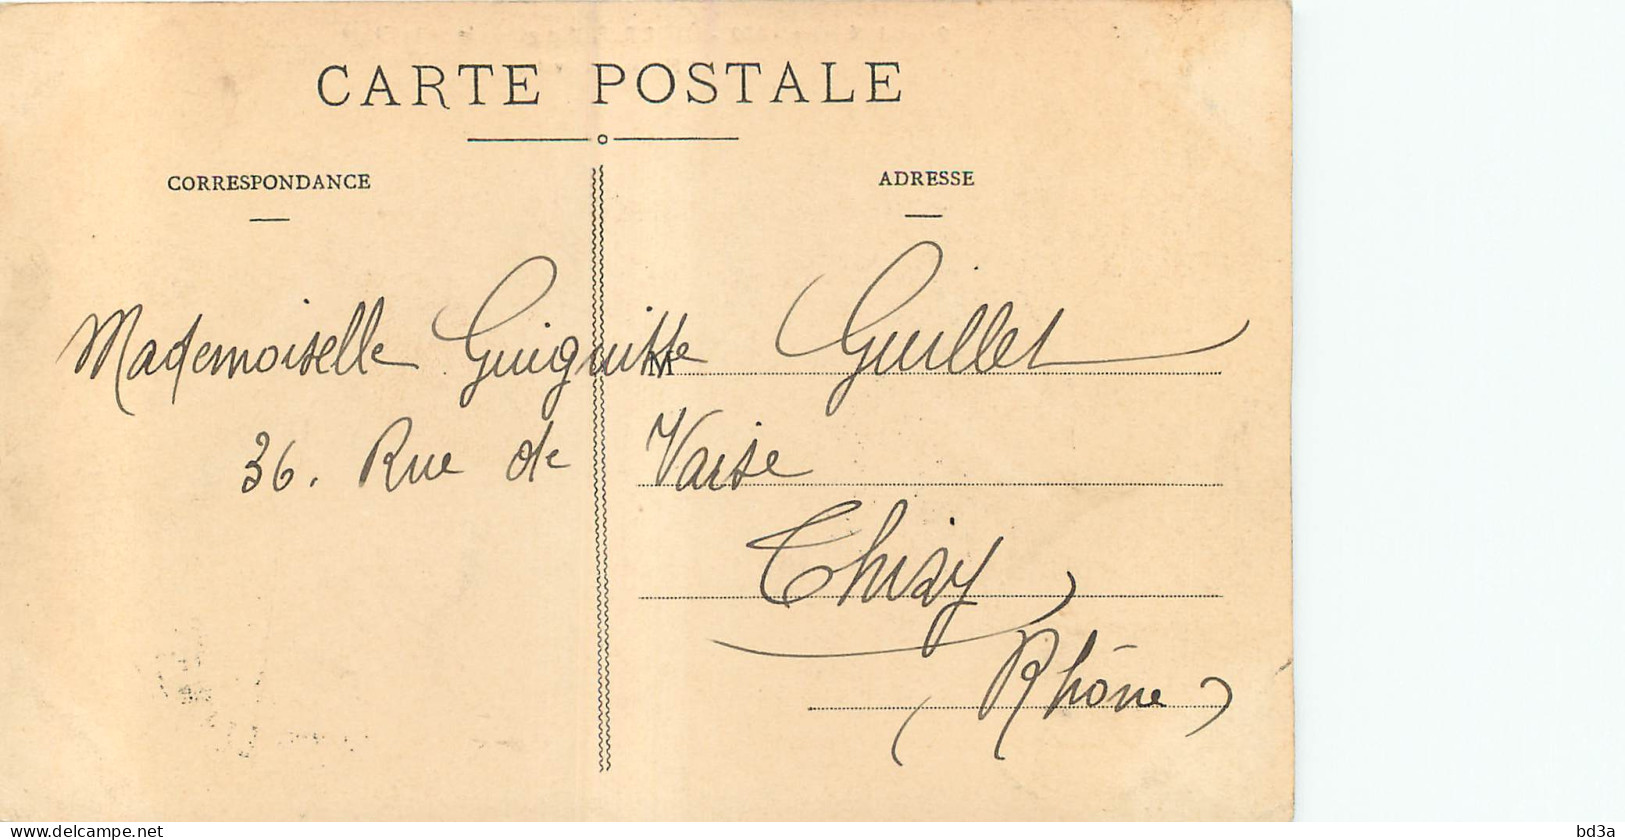 CARTE POSTALE
CORRESPONDANCE
ADRESSE
Mademoiselle Guiguitte Guillet
M
36. Rue de Varse
Thizy
(Rhône)
delcampe.net
bd3a